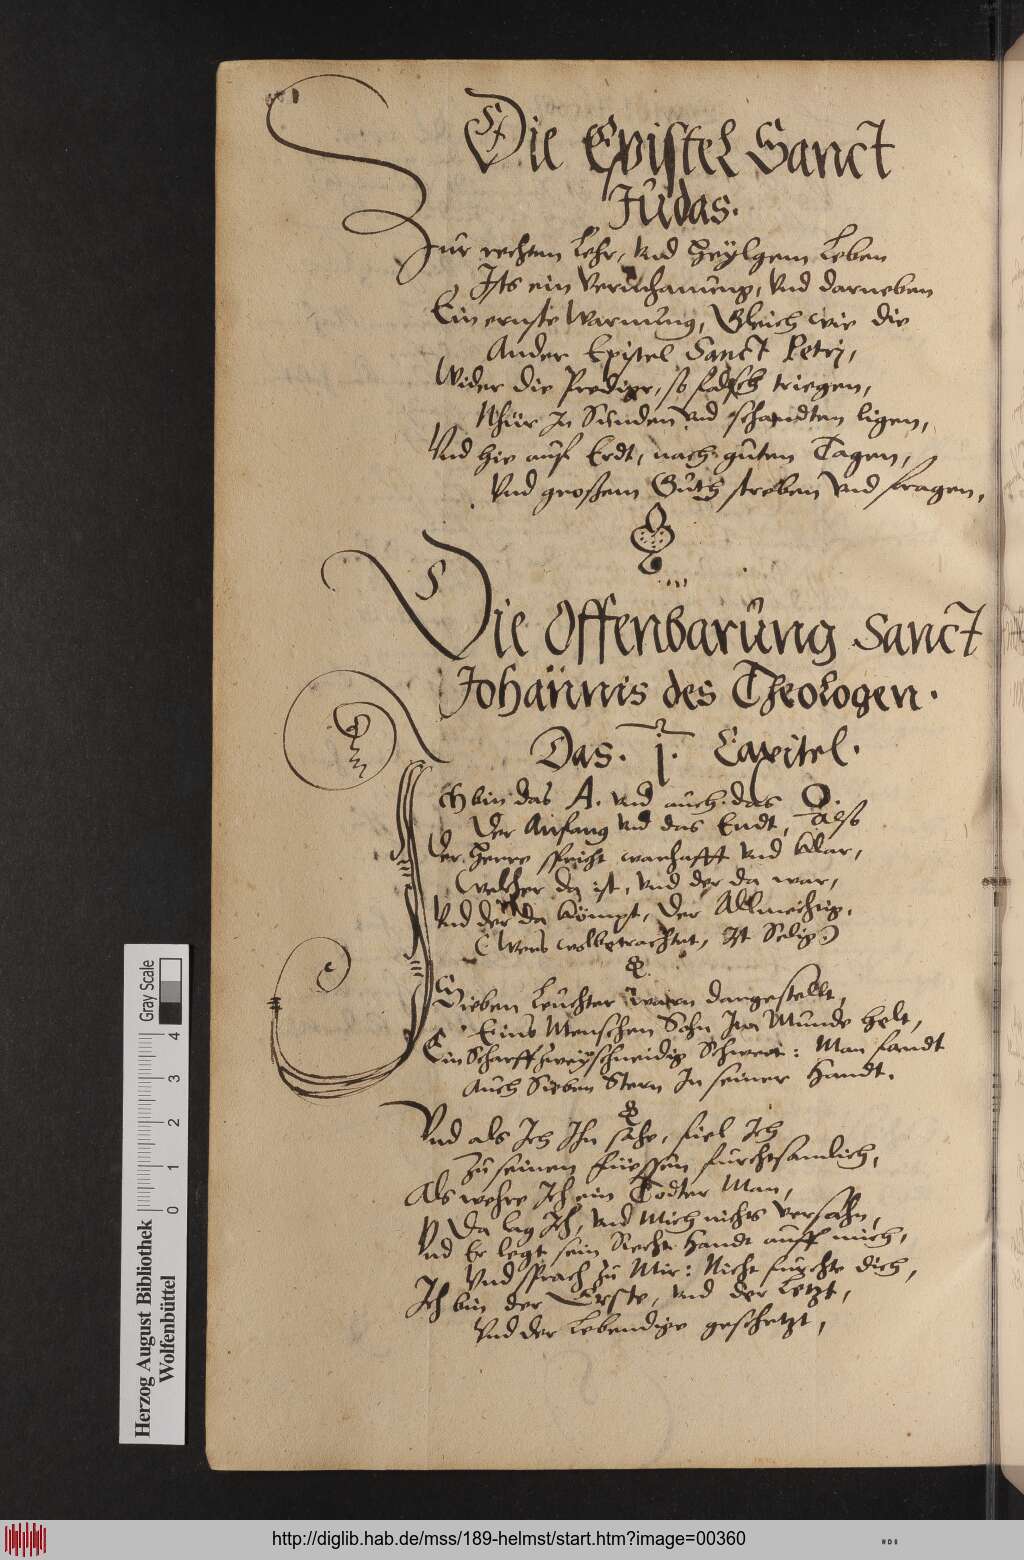 Die Epistel Sanct
Judas.
Zur rechten Lehr, vnd Heylgem Leben
Jsts ein Vermhanung, Vnd darneben
Ein ernste Warnung, Gleich wie die
Ander Epistel Sanct Petri,
Wider die Prediger, so falsch triegen,
Nhur In Sünden vnd schandten ligen,
Vnd hie auf Erdt, nach guten Tagen,
Vnd großem Guth streben vnd fragen.
Die Offenbarung Sanct
Johannis des Theologen.
Das. 1. Capitel.
Ich bin das A. vnd auch das O.
Der Anfang vnd das Endt, also
Der Herre spricht warhafft vnd klar,
Welcher da ist, vnd der da war,
Vnd der da kömpt, Der Allmechtig,
(Wers wolbetrachtet, Ist Selig)
Sieben Leuchter waren dargestellt,
Eins Menschen Sohn Im Munde helt,
Ein Scharff zweyschneidig Schwert: Man fandt
Auch Sieben Stern In seiner Handt.
Vnd als Ich Ihn sahe, fiel Ich
Zu seinen füessen furchtsamlich,
Als wehre Ich ein Todter Man,
Da lag Ich, vnd Mich nichts versahn,
Vnd Er legt sein Recht Handt auff mich,
Vnd sprach zu Mir: Nicht furchte dich,
Ich bin der Erste, vnd der Letzt,
Vnd der Lebendige geschetzt,
Herzog August Bibliothek
Wolfenbüttel
0 1 2 3 4
Gray Scale
http://diglib.hab.de/mss/189-helmst/start.htm?image=00360